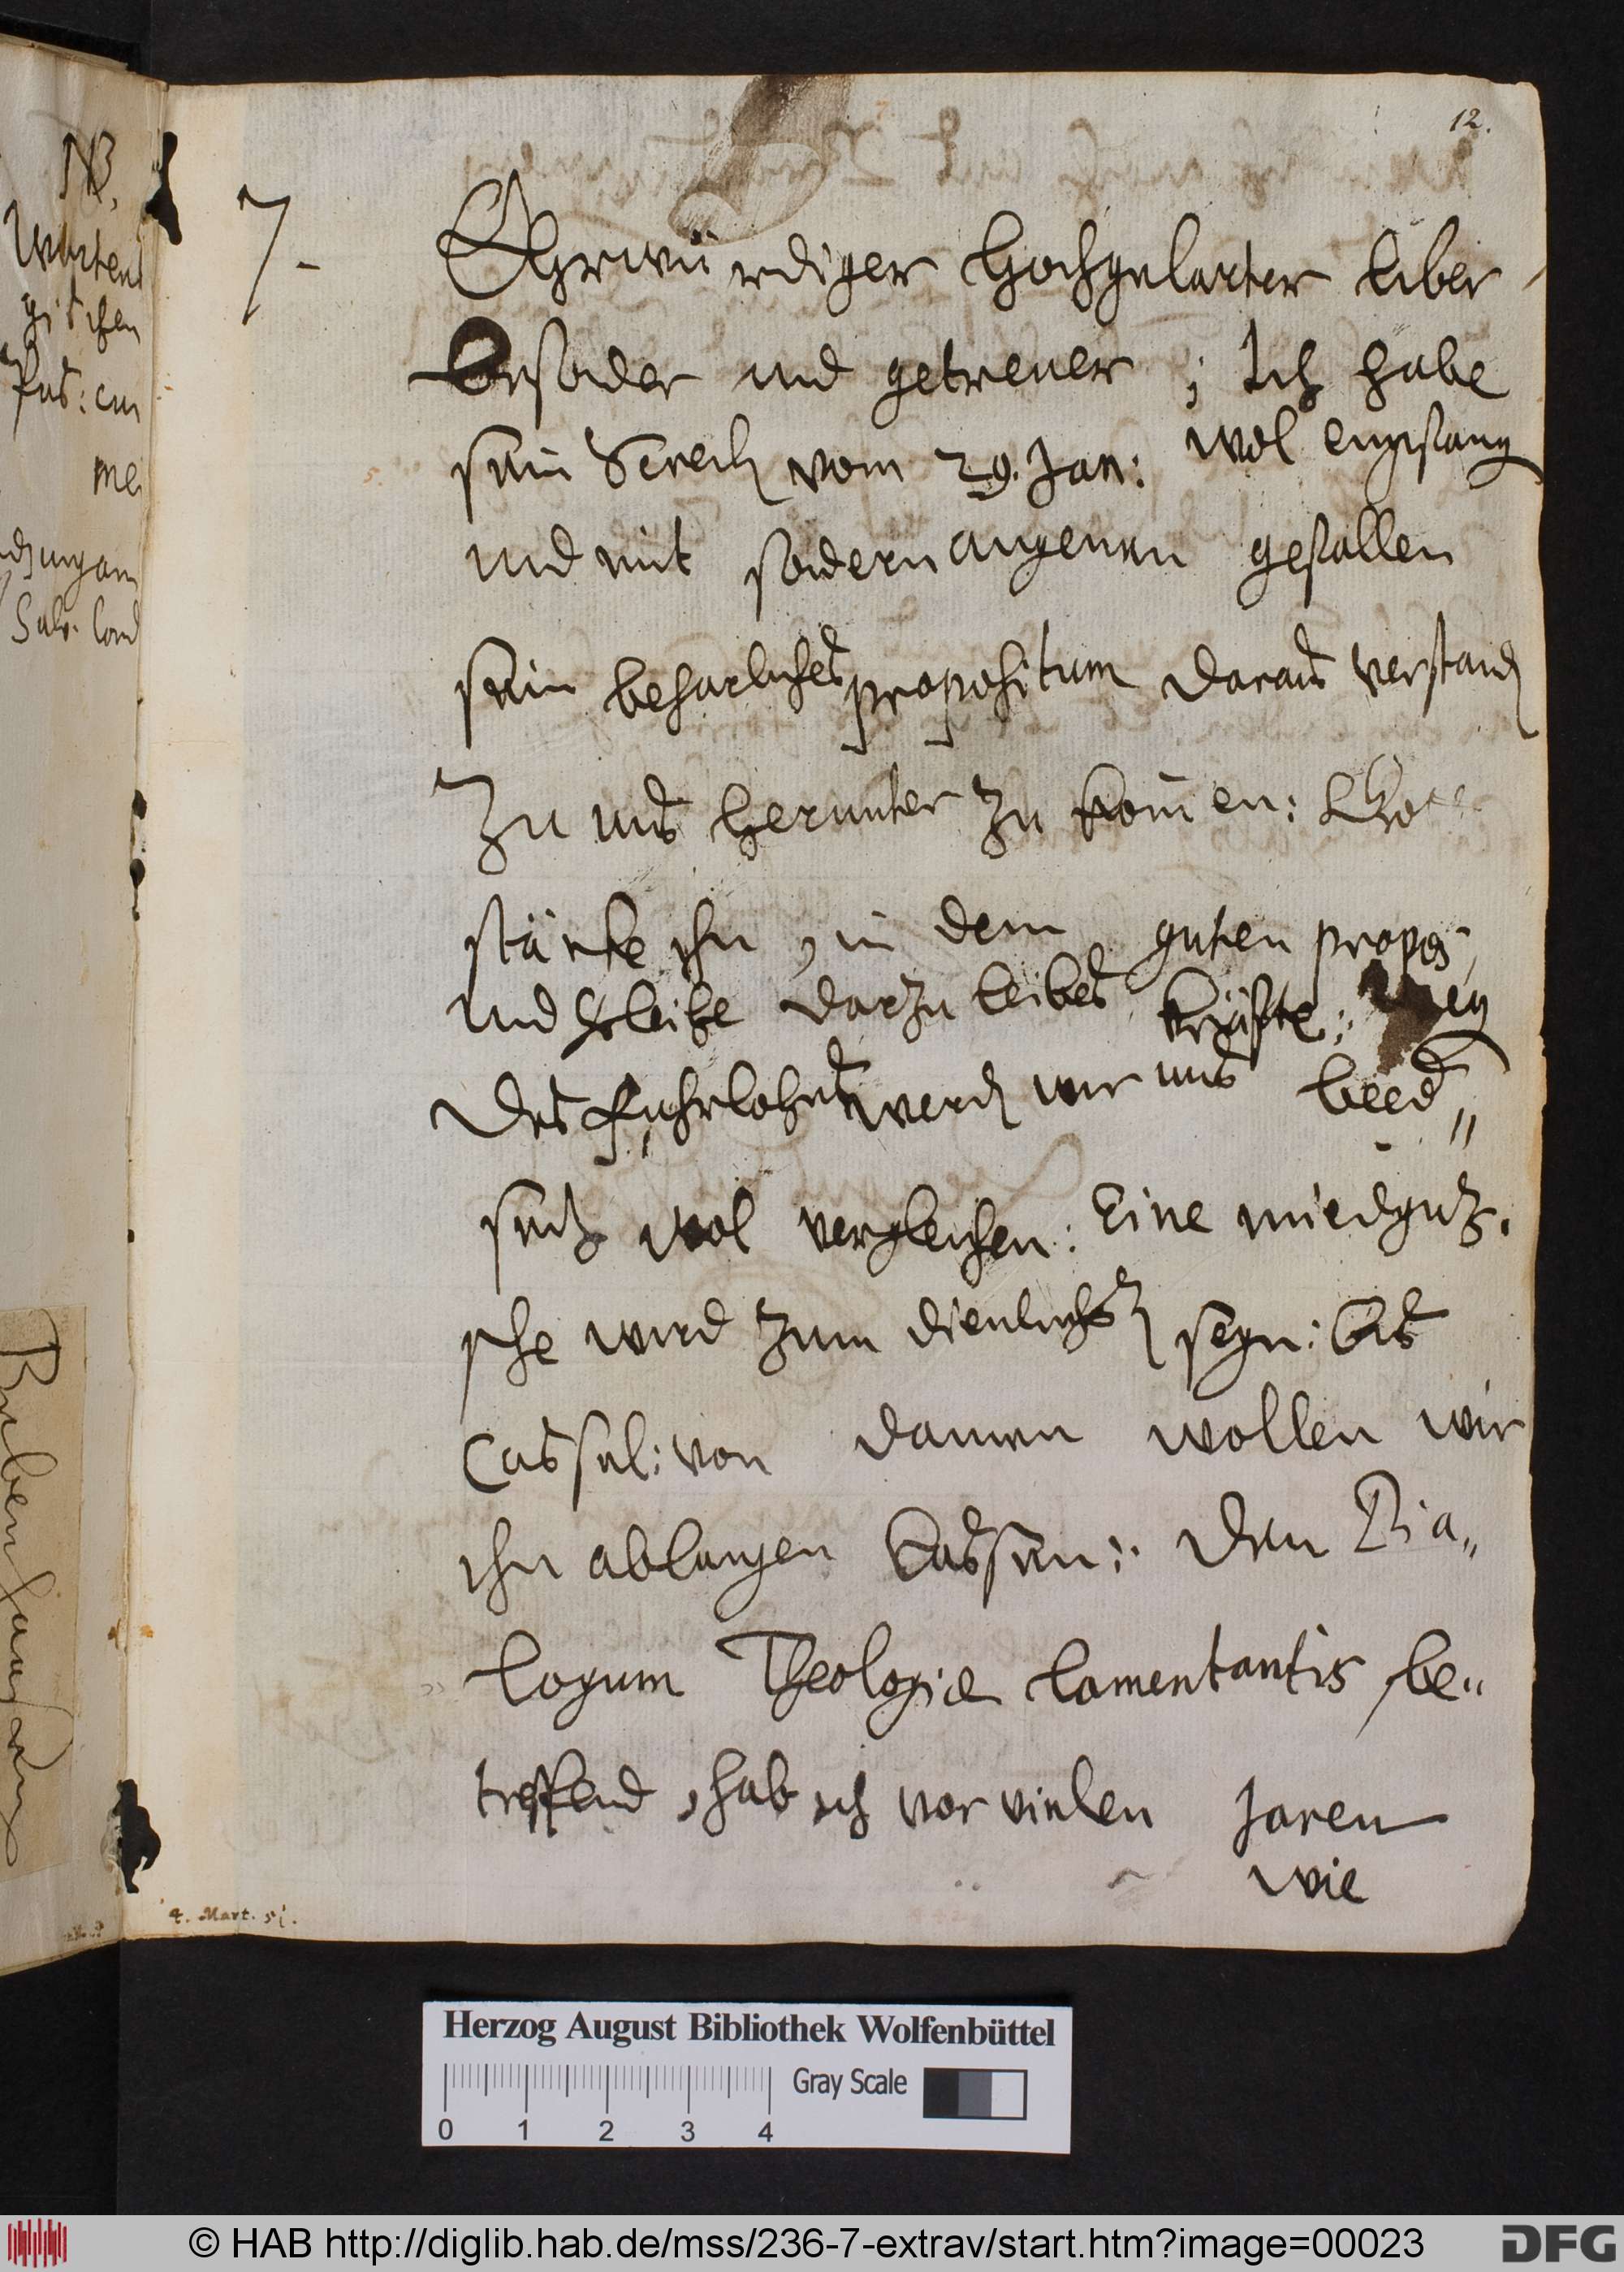 12.
7.
Ehrwürdiger Hochgelarter Liber
besonder und getrewer ; Ich habe
sein Screib vom 29. Jan: wol empfang
und mit sondern angenemen gefallen
sein beharliches propositum daraus verstand
Zu uns herunter zu kommen: Gott
stärke ihn, in dem guten propos
und verleihe darzu leibes kräfte:
Des fuhrlohns werd wir uns beed„
seits wol vergleichen: Eine
wird zum dienlichst seyn: bis
Cassel: von dannen wollen wir
ihn ablangen lassen: Den Dia„
logum Theologiæ lamentantis be„
treffend, hab ich vor vielen Jaren
wie
4. Mart. 51.
NB.
Herzog August Bibliothek Wolfenbüttel
Gray Scale
0 1 2 3 4
© HAB http://diglib.hab.de/mss/236-7-extrav/start.htm?image=00023
DFG